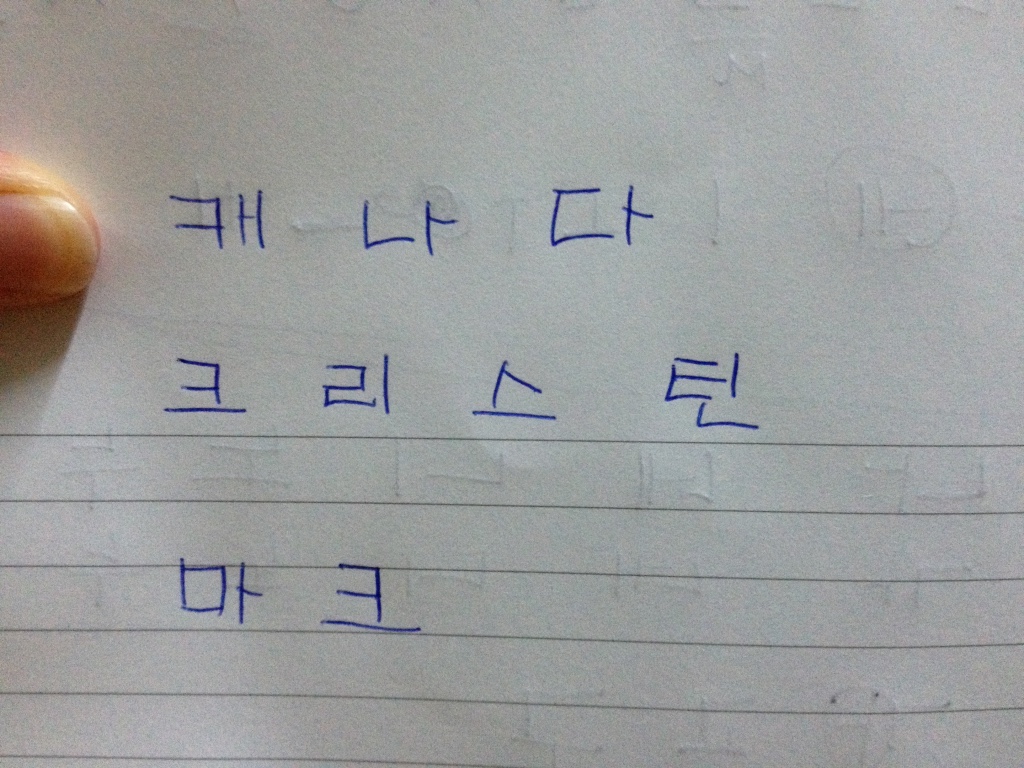 캐나다
크리스틴
마크